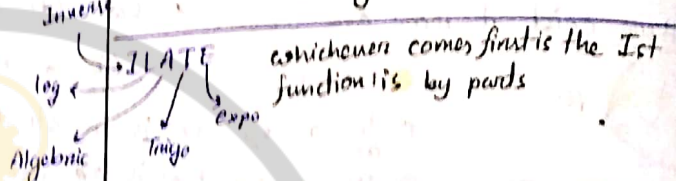 Inverse
ILATE whichever comes first is the Ist
log function is by parts
expo
Algebraic Trigo